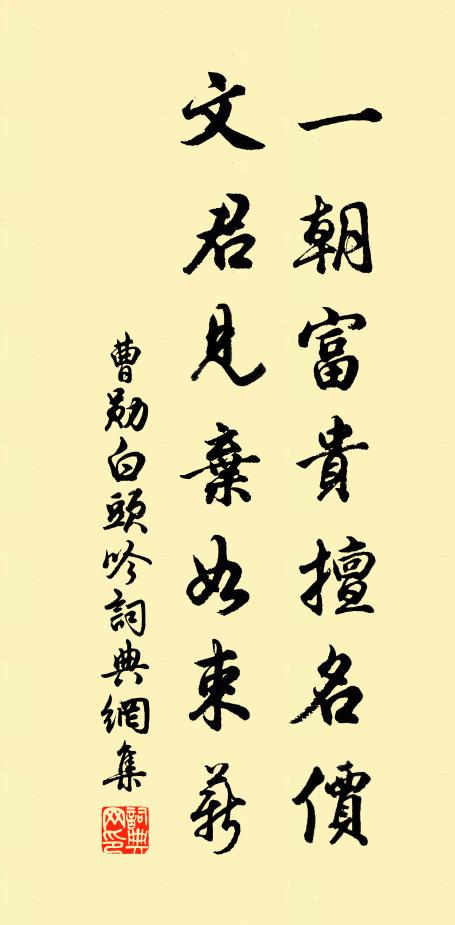 一朝富貴擅名價
文君見棄如束薪
曹勛白頭吟詞典網集
詞典網印